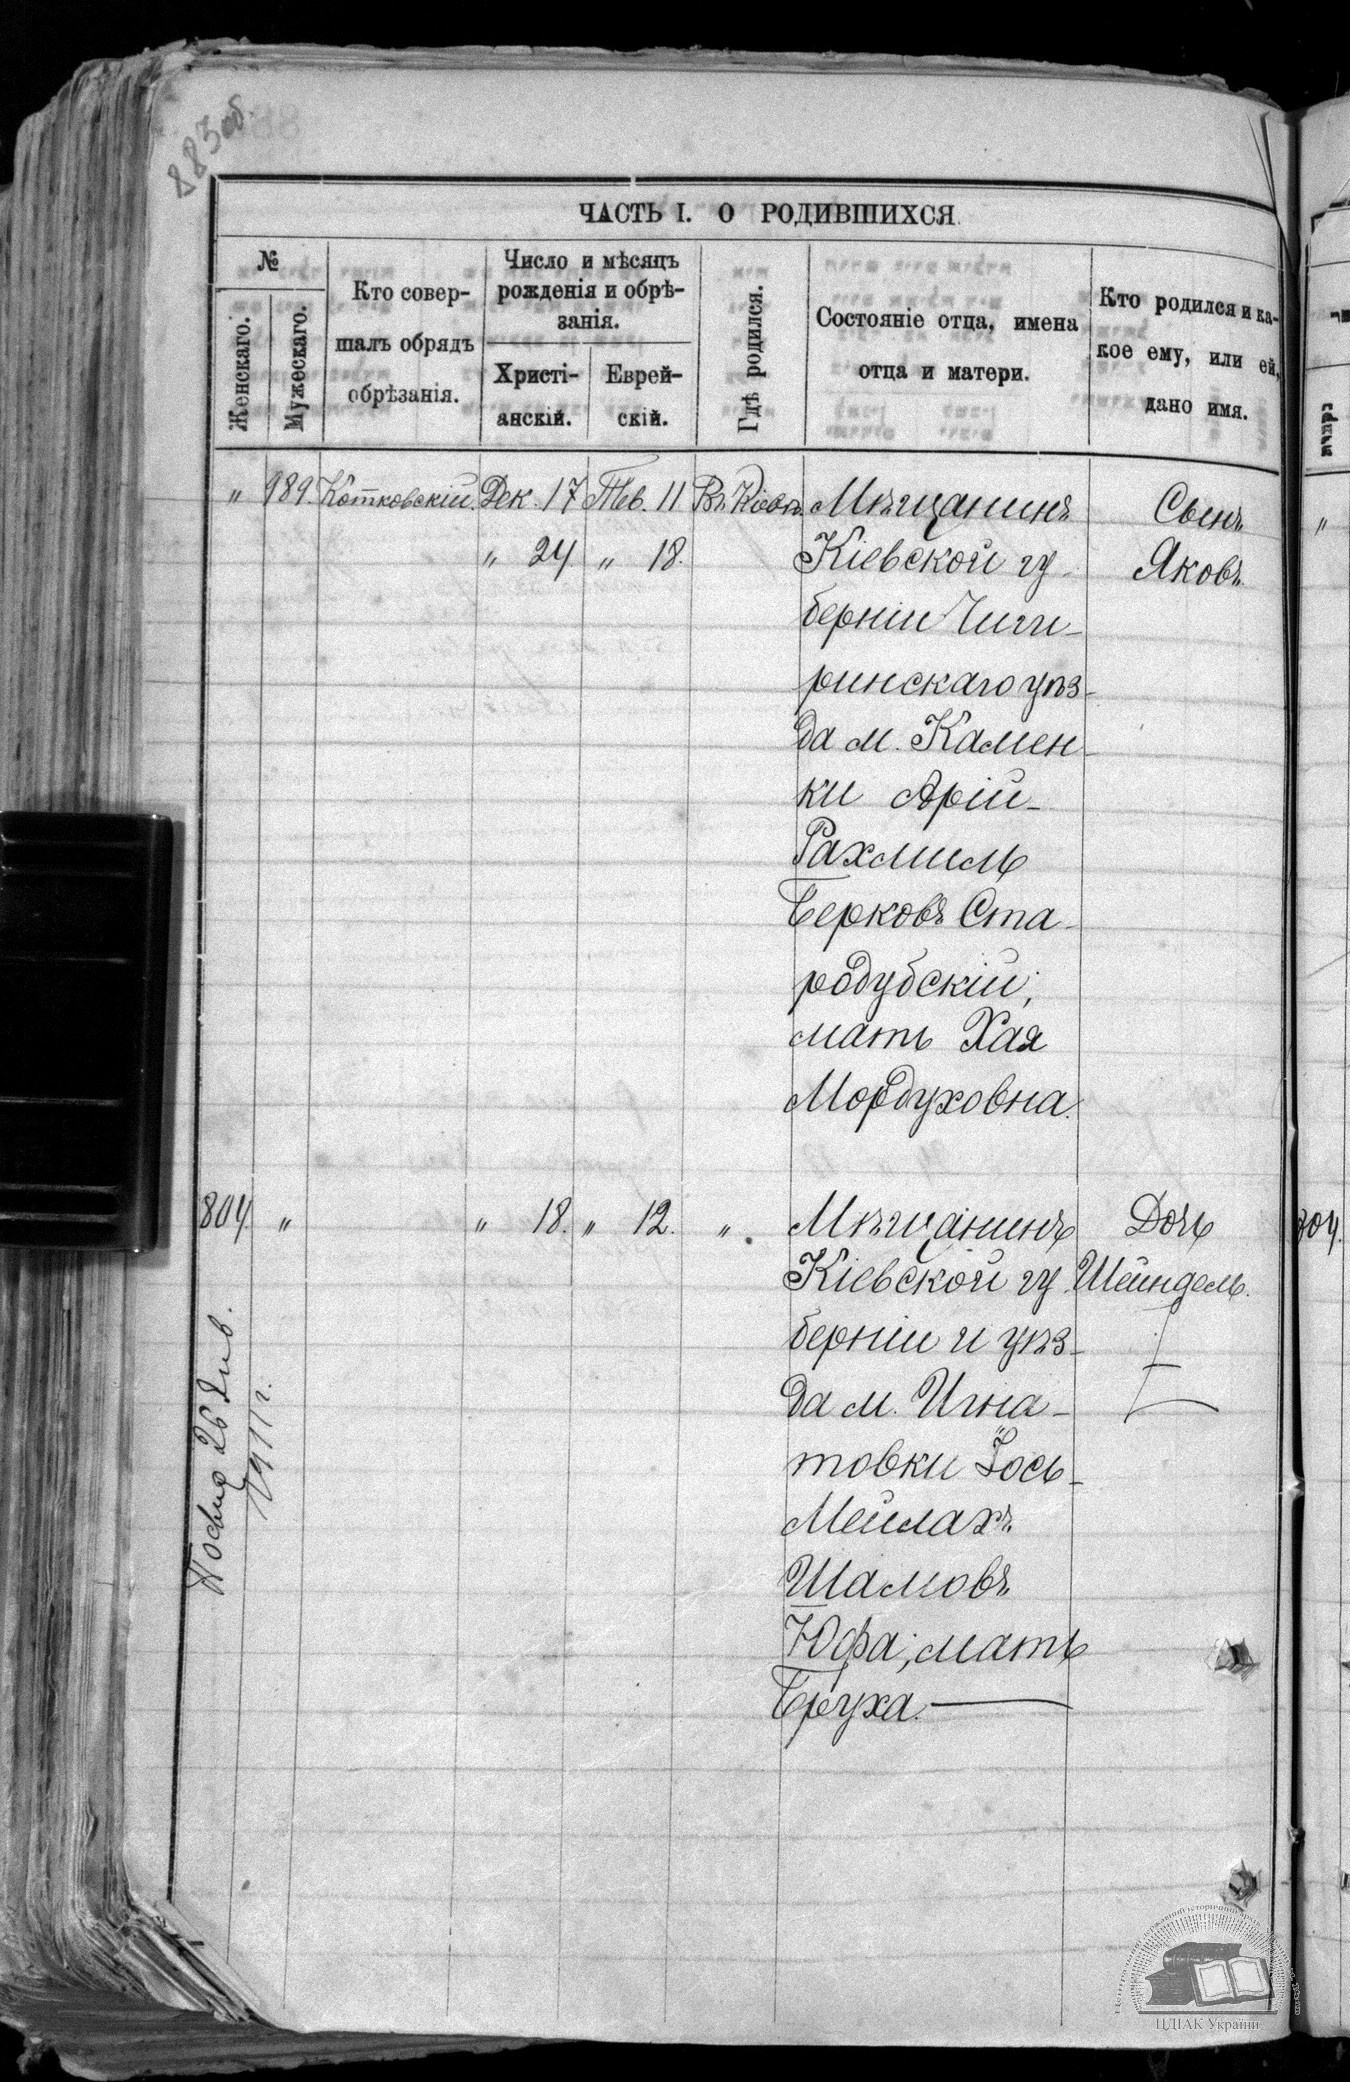 883 об.
ЧАСТЬ I. О РОДИВШИХСЯ.
№
Женскаго.
Мужескаго.
Кто совер-
шалъ обрядъ
обрѣзанія.
Число и мѣсяцъ
рожденія и обрѣ-
занія.
Христі-
анскій.
Еврей-
скій.
Гдѣ родился.
Состояніе отца, имена
отца и матери.
Кто родился и ка-
кое ему, или ей,
дано имя.
" 989. Котковскій. Дек. 17 Тев. 11 Въ Кіевѣ. Мѣщанинъ Сынъ
" 24 " 18. Кіевской гу- Яковъ
берніи Чиги-
ринскаго уѣз-
да м. Камен-
ки Арій-
Рахмиль
Берковъ Ста-
родубскій;
мать Хая
Мордуховна.
804 " " 18. " 12. " Мѣщанинъ Дочь
Кіевской гу- Шейндель.
берніи и уѣз-
да м. Игна-
товки Іось-
Мейлахъ
Шамовъ
Юфа; мать
Бруха.
26 Янв.
1911 г.
804.
ЦДІАК України